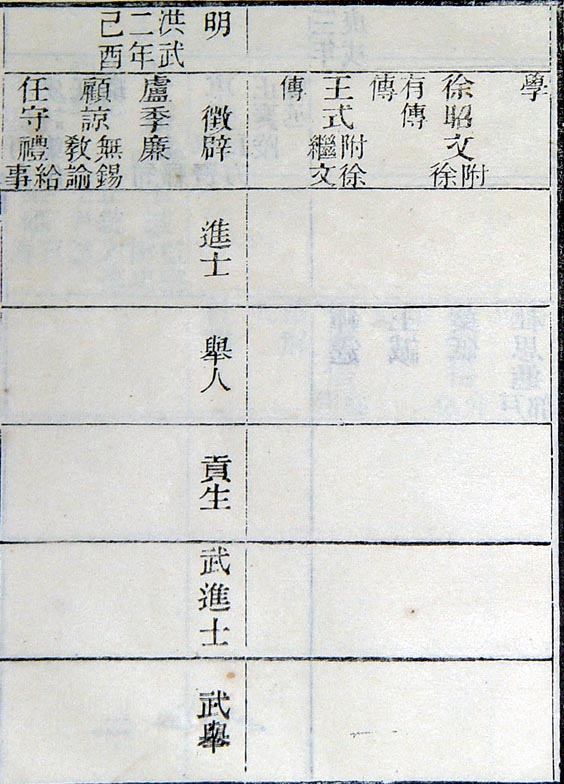 學
徐昭文附徐
有傳
傳
王式附徐
繼文
傳
明
徵辟
進士
舉人
貢生
武進士
武舉
洪武
二年
己酉
盧季廉
顧諒無錫
教諭
任守禮給
事